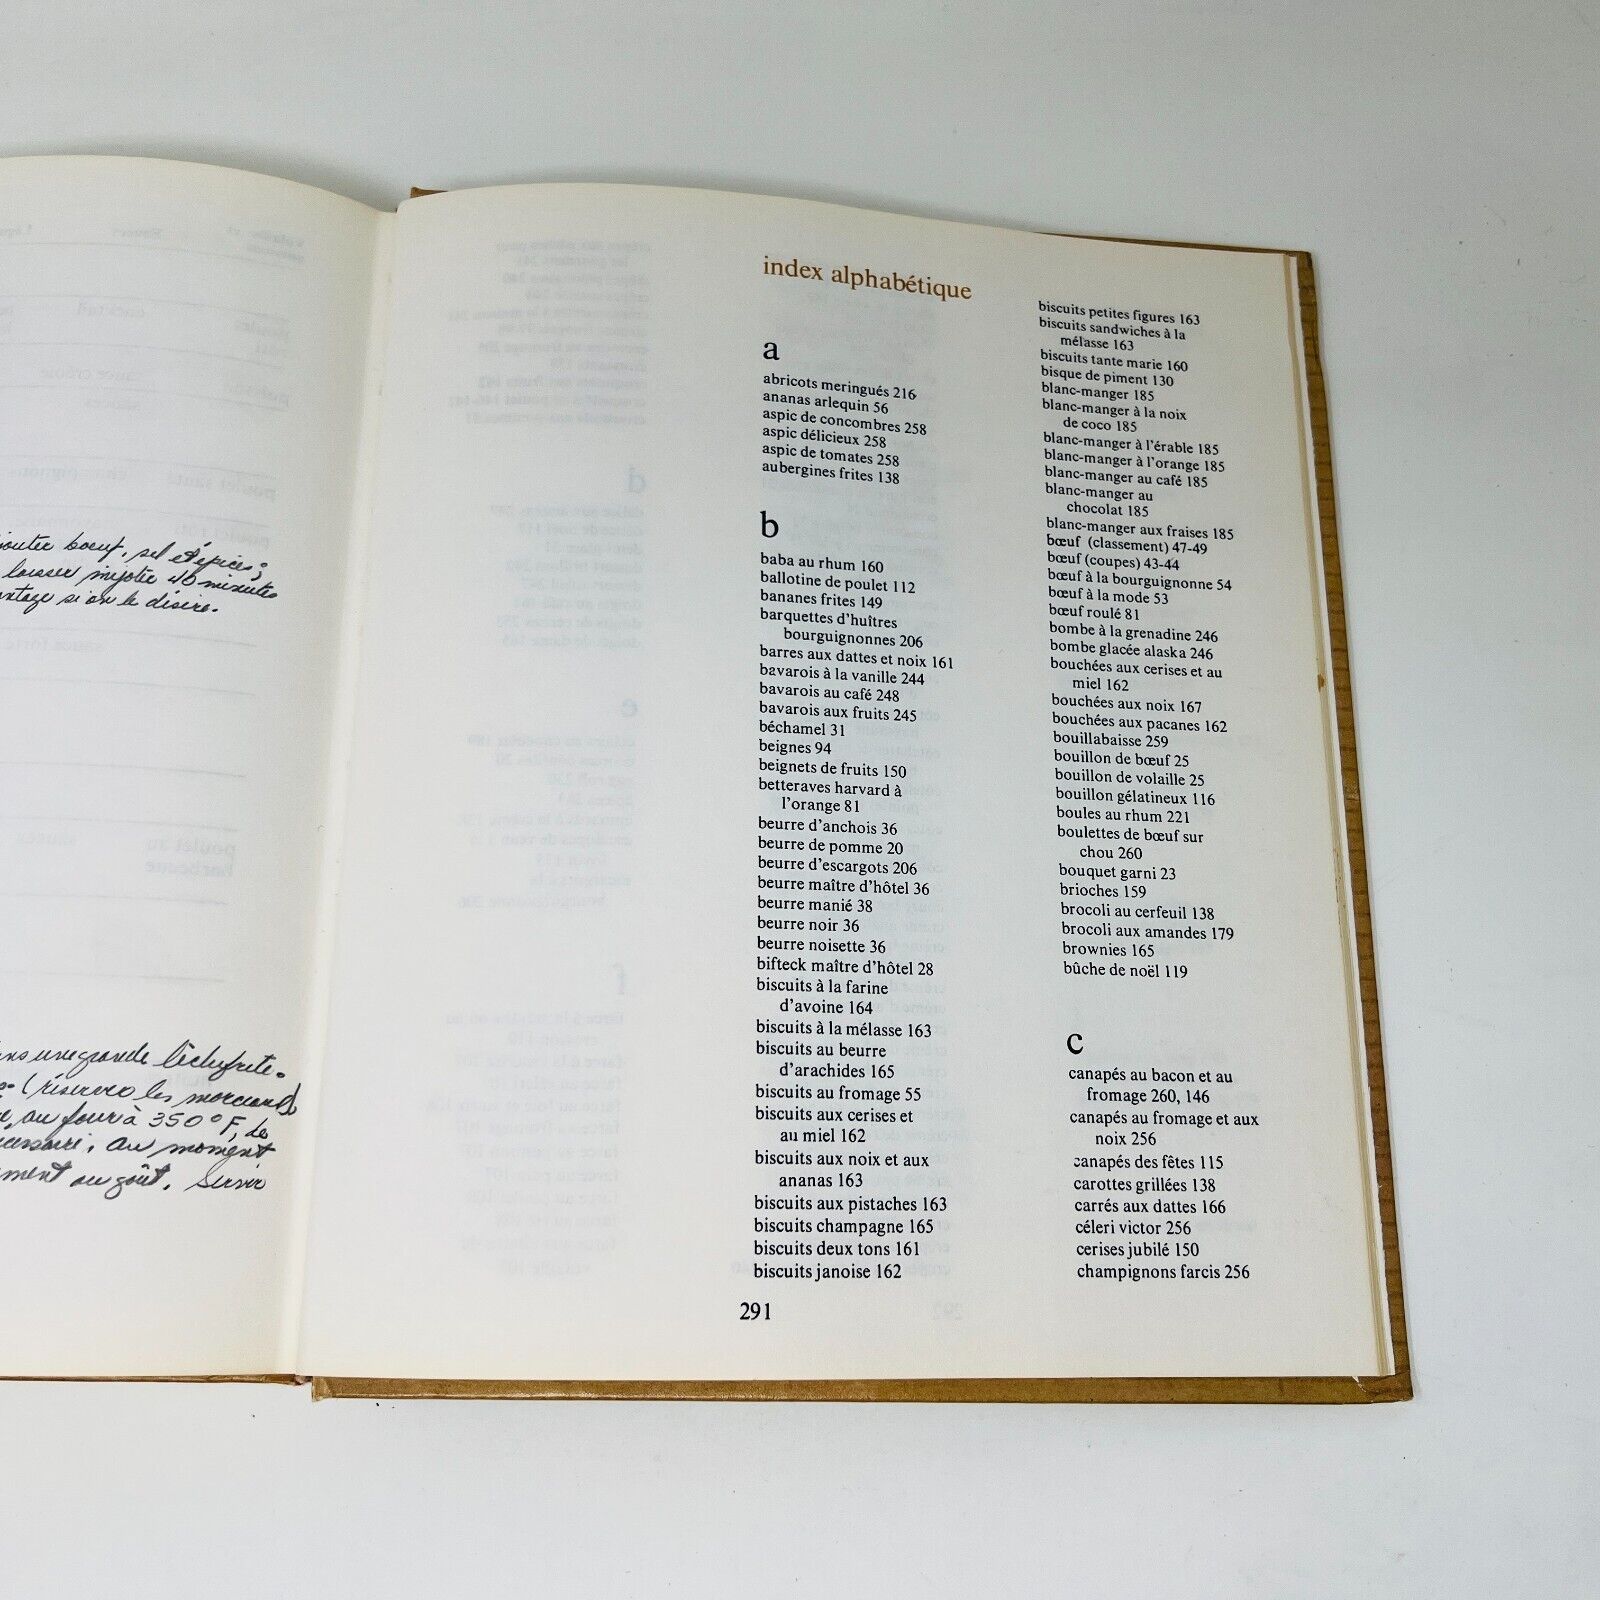 boeuf, sel et épices;
laisser mijoter 40 minutes
si on le désire.
une grande lèchefrite.
(réserver les morceaux de
au four à 350° F, de
au moment
au goût. Servir
index alphabétique
a
abricots meringués 216
ananas arlequin 56
aspic de concombres 258
aspic délicieux 258
aspic de tomates 258
aubergines frites 138
b
baba au rhum 160
ballotine de poulet 112
bananes frites 149
barquettes d'huîtres
bourguignonnes 206
barres aux dattes et noix 161
bavarois à la vanille 244
bavarois au café 248
bavarois aux fruits 245
béchamel 31
beignes 94
beignets de fruits 150
betteraves harvard à
l'orange 81
beurre d'anchois 36
beurre de pomme 20
beurre d'escargots 206
beurre maître d'hôtel 36
beurre manié 38
beurre noir 36
beurre noisette 36
bifteck maître d'hôtel 28
biscuits à la farine
d'avoine 164
biscuits à la mélasse 163
biscuits au beurre
d'arachides 165
biscuits au fromage 55
biscuits aux cerises et
au miel 162
biscuits aux noix et aux
ananas 163
biscuits aux pistaches 163
biscuits champagne 165
biscuits deux tons 161
biscuits janoise 162
biscuits petites figures 163
biscuits sandwiches à la
mélasse 163
biscuits tante marie 160
bisque de piment 130
blanc-manger 185
blanc-manger à la noix
de coco 185
blanc-manger à l'érable 185
blanc-manger à l'orange 185
blanc-manger au café 185
blanc-manger au
chocolat 185
blanc-manger aux fraises 185
bœuf (classement) 47-49
bœuf (coupes) 43-44
bœuf à la bourguignonne 54
bœuf à la mode 53
bœuf roulé 81
bombe à la grenadine 246
bombe glacée alaska 246
bouchées aux cerises et au
miel 162
bouchées aux noix 167
bouchées aux pacanes 162
bouillabaisse 259
bouillon de bœuf 25
bouillon de volaille 25
bouillon gélatineux 116
boules au rhum 221
boulettes de bœuf sur
chou 260
bouquet garni 23
brioches 159
brocoli au cerfeuil 138
brocoli aux amandes 179
brownies 165
bûche de noël 119
c
canapés au bacon et au
fromage 260, 146
canapés au fromage et aux
noix 256
canapés des fêtes 115
carottes grillées 138
carrés aux dattes 166
céleri victor 256
cerises jubilé 150
champignons farcis 256
291